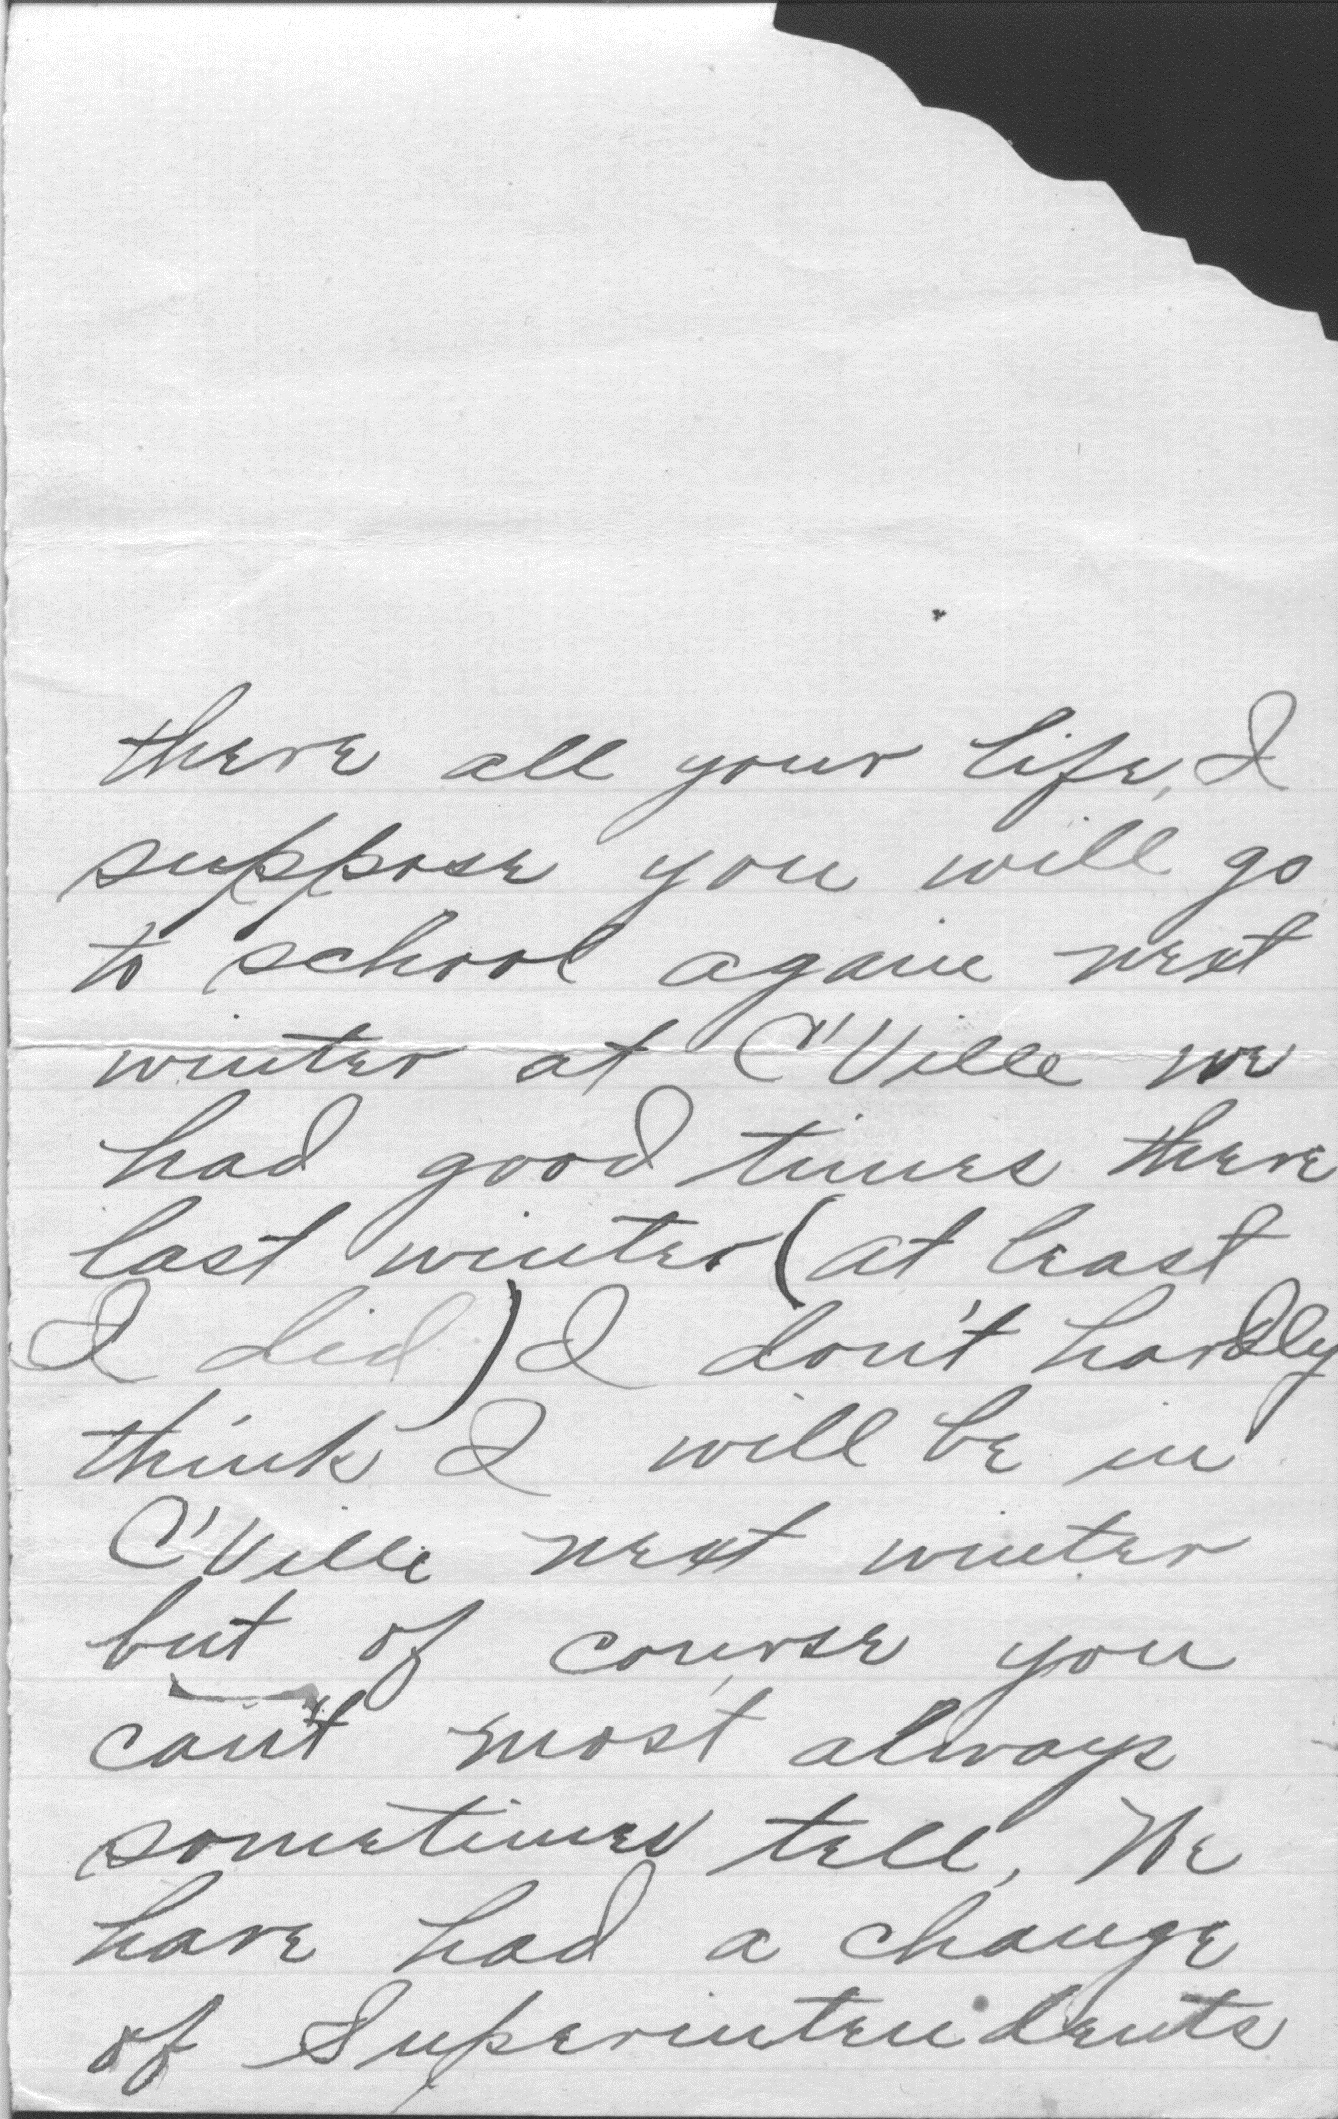 there all your life, I
suppose you will go
to school again next
winter at C'Ville we
had good times there
last winter (at least
I did) I don't hardly
think I will be in
C'Ville next winter
but of course you
can't most always
sometimes tell, We
have had a change
of Superintendents